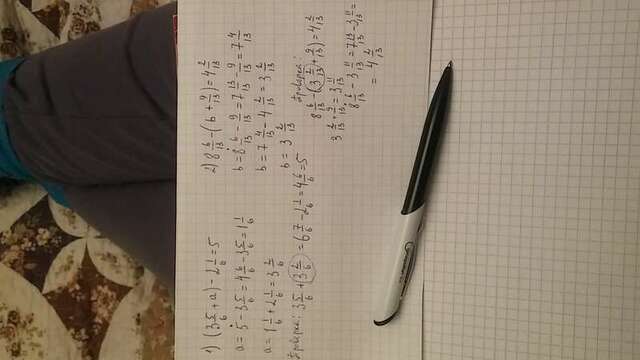 1) (3 5/6 + a) - 2 1/6 = 5
a = 5 - 3 5/6 = 4 6/6 - 3 5/6 = 1 1/6
a = 1 1/6 + 2 1/6 = 3 2/6
Проверка: 3 5/6 + 3 2/6 = 6 7/6 - 2 1/6 = 4 6/6 = 5
2) 8 6/13 - (b + 9/13) = 4 2/13
b = 8 6/13 - 9/13 = 7 19/13 - 9/13 = 7 4/13
b = 7 4/13 - 4 2/13 = 3 2/13
b = 3 2/13
Проверка:
8 6/13 - (3 2/13 + 9/13) = 4 2/13
3 2/13 + 9/13 = 3 11/13
8 6/13 - 3 11/13 = 7 19/13 - 3 11/13 =
= 4 2/13